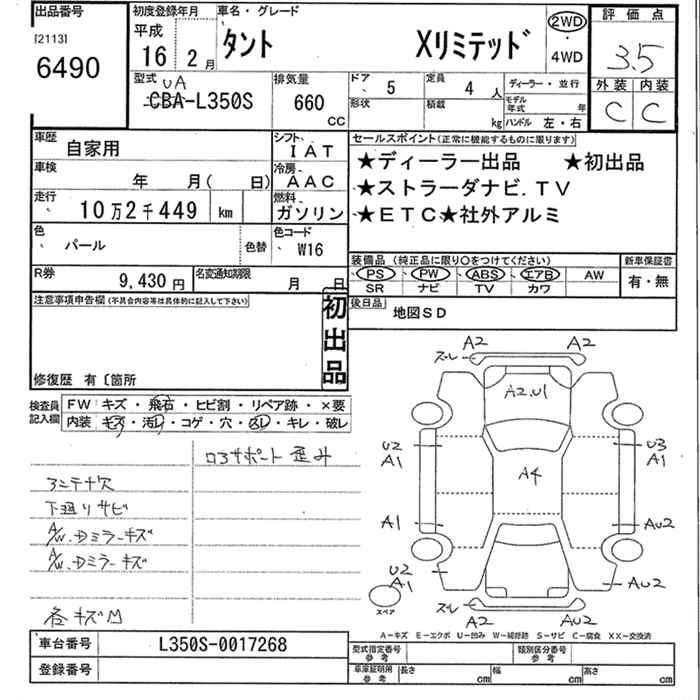 出品番号 初度登録年月 車名・グレード 評価点
[2113] 平成 2WD
6490 16年 2月 タント Xリミテッド 4WD 3.5
型式 UA 排気量 ドア 5 定員 4人 ディーラー・並行 外装 内装
CBA-L350S 660 CC 形状 積載 kg モデル年式 年 ハンドル 左・右 C C
車歴 自家用 シフト IAT セールスポイント(正常に機能するものに限ります)
車検 年 月( 日) 冷房 AAC ★ディーラー出品 ★初出品
走行 10万2千449 km 燃料 ガソリン ★ストラーダナビ.TV
★ETC★社外アルミ
色 パール 色替 色コード W16
装備品(純正品に限り○をつけてください) 新車保証書
R券 9,430円 名変通知期限 月 日 PS PW ABS エアB AW 有・無
SR ナビ TV カワ
注意事項申告欄(不具合内容等は具体的に記入して下さい) 初出品 後日品 地図SD
修復歴 有〔箇所
検査員記入欄 FW キズ・飛石・ヒビ割・リペア跡・×要
内装 キズ・汚レ・コゲ・穴・スレ・キレ・破レ
ロアサポート歪み
アンテナ穴
下廻りサビ
A/W.Dミラーキズ
A/W.Dミラーキズ
各キズM
ズレ A2 A2
A2.U1
U2 U3
A1 A1
A4
A1 AU2
U2
A1 AU2
スペア ズレ A2 AU2
A-キズ E-エクボ U-凹み W-補修跡 S-サビ C-腐食 XX-交換済
車台番号 L350S-0017268 型式指定番号参考 類別区分番号参考
登録番号 車庫証明用参考 長さ cm 幅 cm 高さ cm